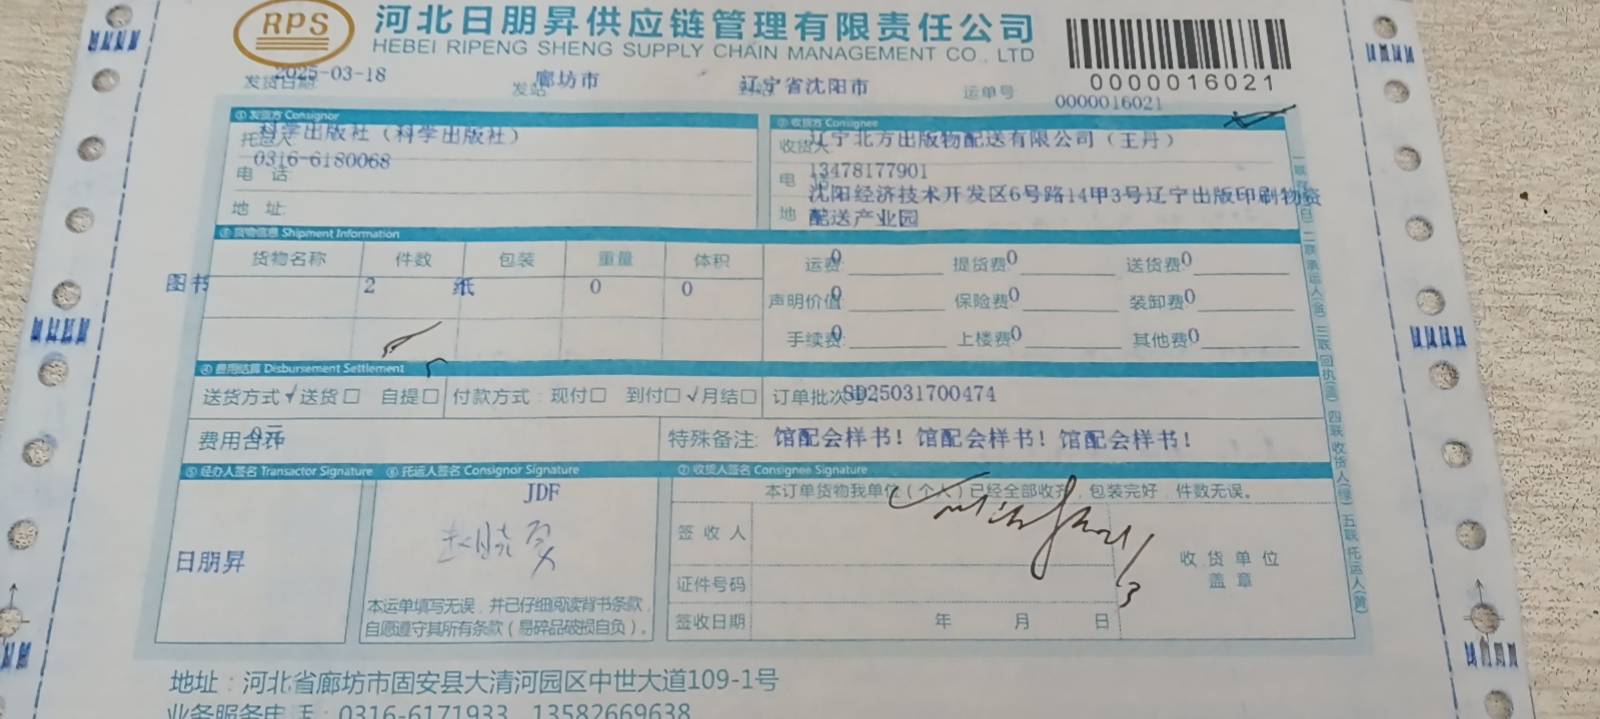 RPS
河北日朋昇供应链管理有限责任公司
HEBEI RIPENG SHENG SUPPLY CHAIN MANAGEMENT CO., LTD
0000016021
发货日期 2025-03-18 发站 廊坊市 辽宁省沈阳市 运单号 0000016021
① 发货方 Consignor
托运人 科学出版社（科学出版社）
电 话 0316-6180068
地 址:
② 收货方 Consignee
收货人 辽宁北方出版物配送有限公司（王丹）
电 话 13478177901
地 沈阳经济技术开发区6号路14甲3号辽宁出版印刷物资
配送产业园
③ 货物信息 Shipment Information
货物名称 件数 包装 重量 体积
图书 2 纸 0 0
运费 0 提货费 0 送货费 0
声明价值 0 保险费 0 装卸费 0
手续费 0 上楼费 0 其他费 0
④ 费用结算 Disbursement Settlement
送货方式 √送货□ 自提□ 付款方式: 现付□ 到付□ √月结□ 订单批次号 SD25031700474
费用合计 0元 特殊备注: 馆配会样书! 馆配会样书! 馆配会样书!
⑤ 经办人签名 Transactor Signature
日朋昇
⑥ 托运人签名 Consignor Signature
JDF
本运单填写无误，并已仔细阅读背书条款，
自愿遵守其所有条款（易碎品破损自负）。
⑦ 收货人签名 Consignee Signature
本订单货物我单位（个人）已经全部收齐，包装完好，件数无误。
签 收 人
证件号码
签收日期 年 月 日
收 货 单 位
盖 章
二联承运人(合) 三联回执(酒) 四联收货人(绿) 五联托运人(黄)
地址：河北省廊坊市固安县大清河园区中世大道109-1号
业务服务电话：0316-6171933 13582669638